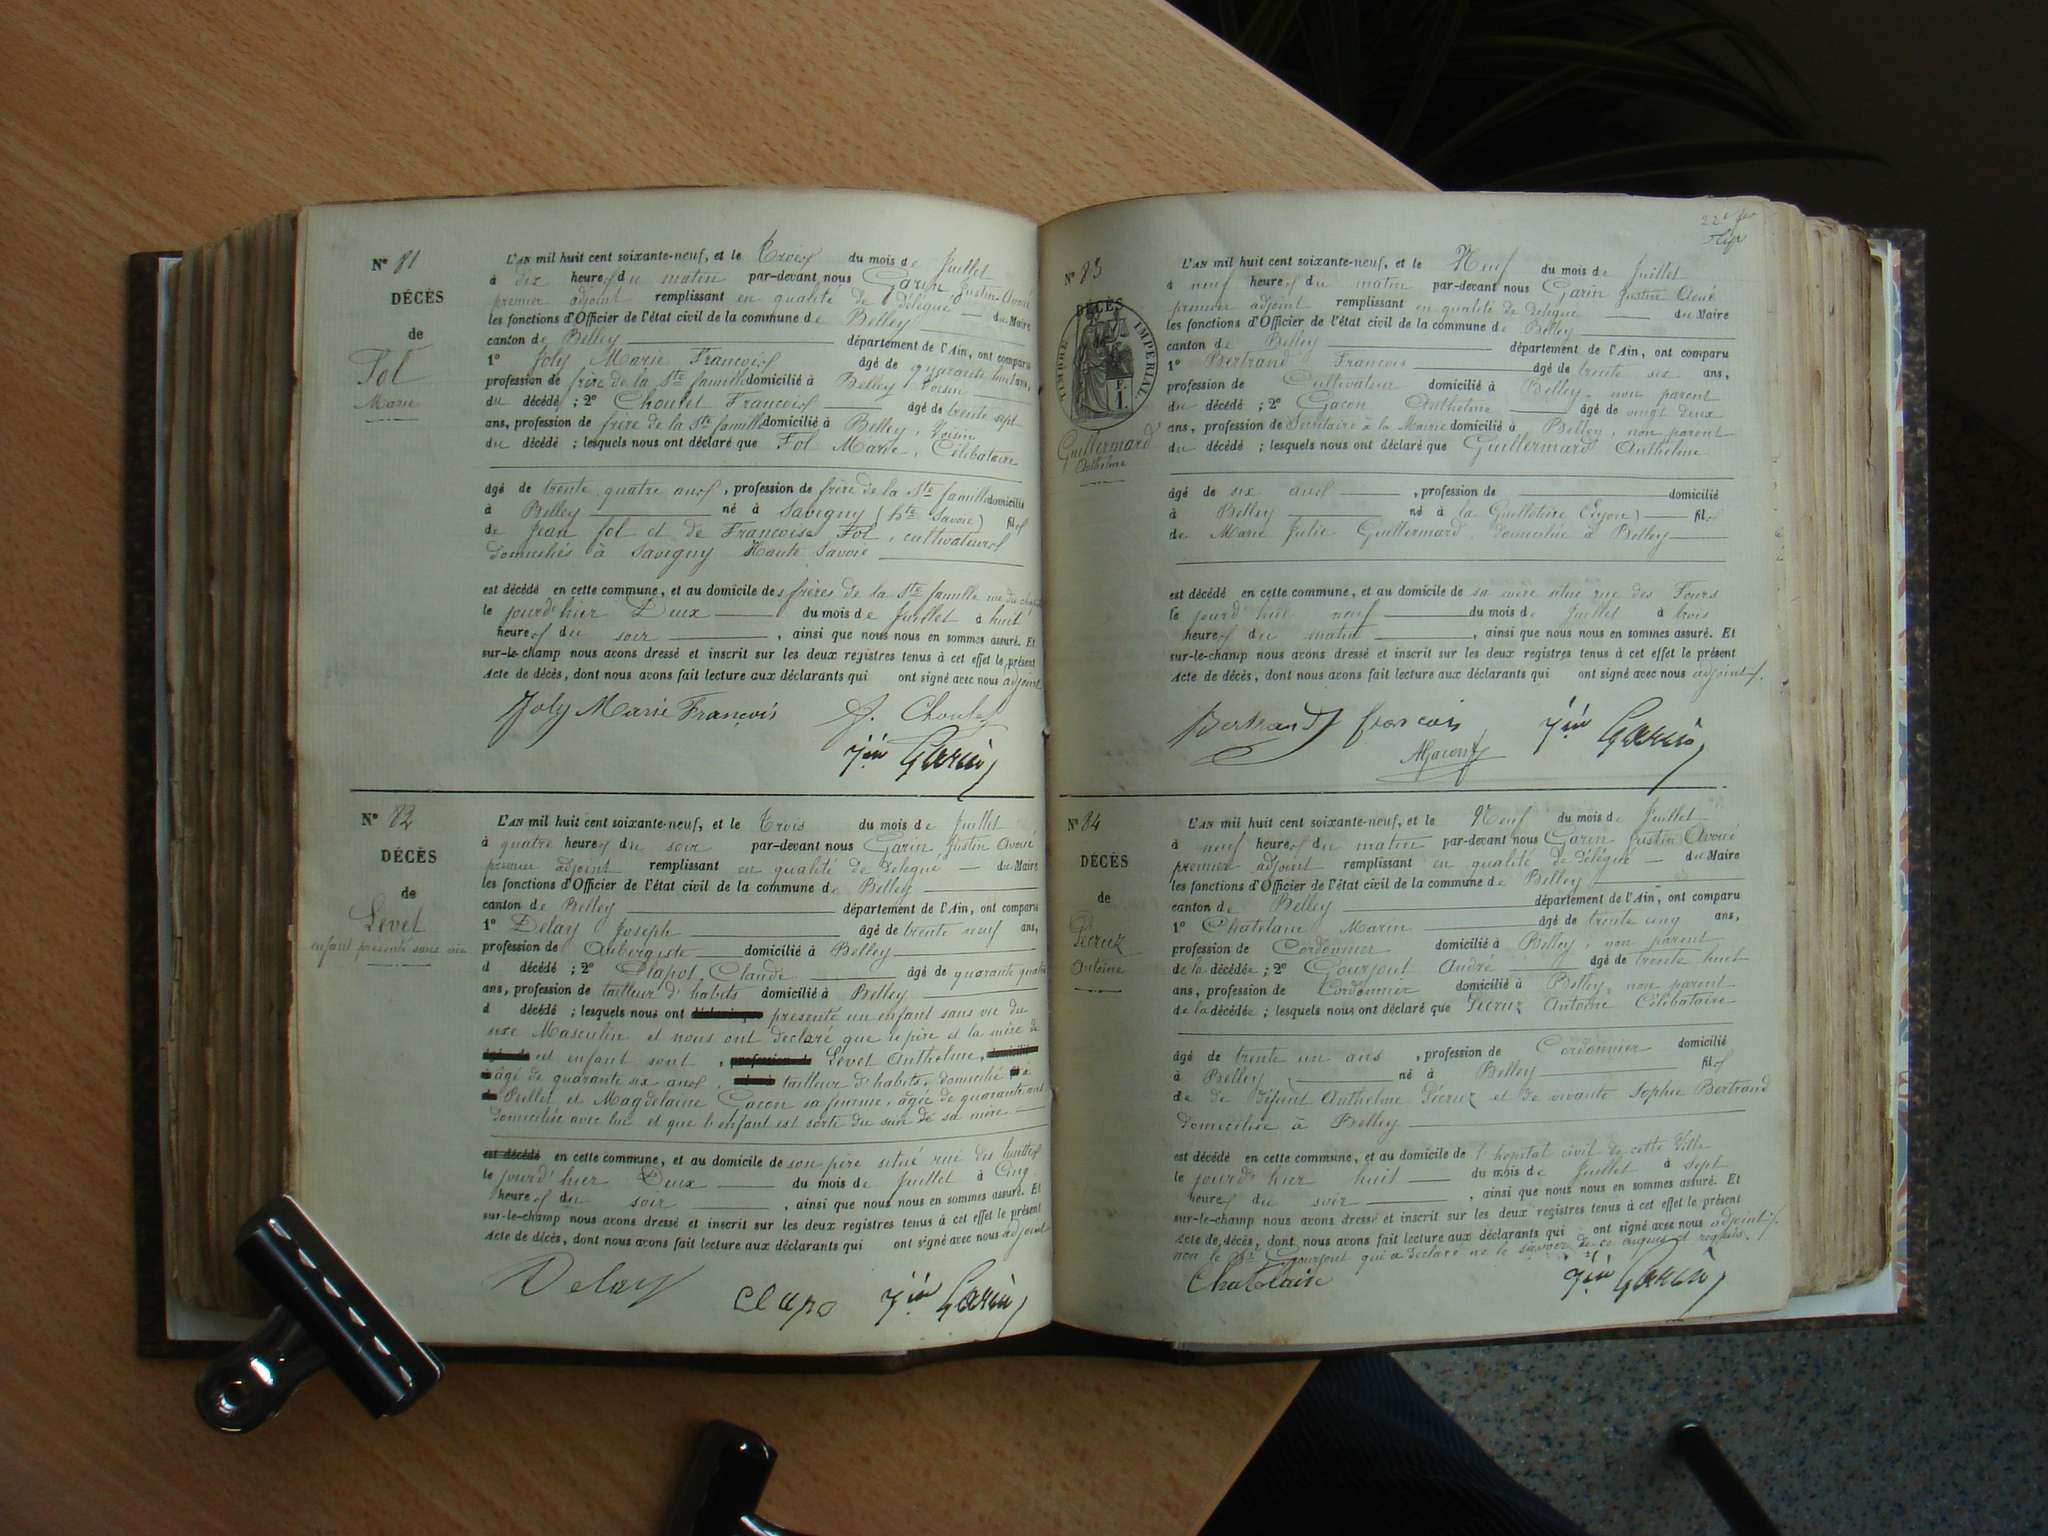 N° 81
DÉCÈS
de
Fol
Marie
L'AN mil huit cent soixante-neuf, et le Trois du mois de Juillet
à dix heures du matin par-devant nous Garin Justin Avoué
premier adjoint remplissant en qualité de délégué du Maire
les fonctions d'Officier de l'état civil de la commune de Belley
canton de Belley département de l'Ain, ont comparu
1° Joly Marie François âgé de quarante huit ans,
profession de frère de la Ste famille domicilié à Belley voisin
du décédé ; 2° Choulet François âgé de trente sept
ans, profession de frère de la Ste famille domicilié à Belley, voisin
du décédé ; lesquels nous ont déclaré que Fol Marie, Célibataire
âgé de trente quatre ans, profession de frère de la Ste famille domicilié
à Belley né à Savigny (hte Savoie) fils
de Jean fol et de Françoise Fol, cultivateurs
domiciliés à Savigny Haute Savoie
est décédé en cette commune, et au domicile des frères de la Ste famille rue du
le jourd'hier Deux du mois de Juillet à huit
heures du soir, ainsi que nous nous en sommes assuré. Et
sur-le-champ nous avons dressé et inscrit sur les deux registres tenus à cet effet le présent
acte de décès, dont nous avons fait lecture aux déclarants qui ont signé avec nous adjoint
Joly Marie François J. Choulet
Jin Garin
N° 82
DÉCÈS
de
Levet
enfant présenté sans vie
L'AN mil huit cent soixante-neuf, et le Trois du mois de Juillet
à quatre heures du soir par-devant nous Garin Justin Avoué
premier adjoint remplissant en qualité de délégué du Maire
les fonctions d'Officier de l'état civil de la commune de Belley
canton de Belley département de l'Ain, ont comparu
1° Delay Joseph âgé de trente neuf ans,
profession de Aubergiste domicilié à Belley
d décédé ; 2° Clapot Claude âgé de quarante quatre
ans, profession de tailleur d'habits domicilié à Belley
d décédé ; lesquels nous ont présenté un enfant sans vie du
sexe Masculin et nous ont déclaré que le père et la mère de
cet enfant sont, Levet Anthelme,
âgé de quarante six ans, tailleur d'habits, domicilié à
Belley et Magdelaine Gacon sa femme, âgée de quarante ans
domiciliée avec lui et que l'enfant est sorti du sein de sa mère
en cette commune, et au domicile de son père situé rue des
le jourd'hier Deux du mois de Juillet à Cinq
heures du soir, ainsi que nous nous en sommes assuré. Et
sur-le-champ nous avons dressé et inscrit sur les deux registres tenus à cet effet le présent
acte de décès, dont nous avons fait lecture aux déclarants qui ont signé avec nous adjoint
Delay Clapo Jin Garin
N° 83
DÉCÈS
de
TIMBRE IMPÉRIAL
Guillermard
Anthelme
L'AN mil huit cent soixante-neuf, et le Neuf du mois de Juillet
à neuf heures du matin par-devant nous Garin Justin Avoué
premier adjoint remplissant en qualité de délégué du Maire
les fonctions d'Officier de l'état civil de la commune de Belley
canton de Belley département de l'Ain, ont comparu
1° Bertrand François âgé de trente six ans,
profession de Cultivateur domicilié à Belley, non parent
du décédé ; 2° Gacon Anthelme âgé de vingt deux
ans, profession de Secrétaire à la Mairie domicilié à Belley, non parent
du décédé ; lesquels nous ont déclaré que Guillermard Anthelme
âgé de six ans, profession de domicilié
à Belley né à la Guillotière (Lyon) fils
de Marie Julie Guillermard, domiciliée à Belley
est décédé en cette commune, et au domicile de sa mère situé rue des Fours
le jourd'hui neuf du mois de Juillet à trois
heures du matin, ainsi que nous nous en sommes assuré. Et
sur-le-champ nous avons dressé et inscrit sur les deux registres tenus à cet effet le présent
acte de décès, dont nous avons fait lecture aux déclarants qui ont signé avec nous adjoint
Bertrand françois AGacon Jin Garin
N° 84
DÉCÈS
de
Pécruz
Antoine
L'AN mil huit cent soixante-neuf, et le Neuf du mois de Juillet
à neuf heures du matin par-devant nous Garin Justin Avoué
premier adjoint remplissant en qualité de délégué du Maire
les fonctions d'Officier de l'état civil de la commune de Belley
canton de Belley département de l'Ain, ont comparu
1° Chatelain Marin âgé de trente cinq ans,
profession de Cordonnier domicilié à Belley, non parent
de la décédée ; 2° Gourjout André âgé de trente huit
ans, profession de Cordonnier domicilié à Belley, non parent
de la décédée ; lesquels nous ont déclaré que Pécruz Antoine Célibataire
âgé de trente un ans, profession de Cordonnier domicilié
à Belley né à Belley fils
de de Défunt Anthelme Pécruz et de vivante Sophie Bertrand
domiciliée à Belley
est décédé en cette commune, et au domicile de l'hôpital civil de cette Ville
le jourd'hier huit du mois de Juillet à sept
heures du soir, ainsi que nous nous en sommes assuré. Et
sur-le-champ nous avons dressé et inscrit sur les deux registres tenus à cet effet le présent
acte de décès, dont nous avons fait lecture aux déclarants qui ont signé avec nous adjoint
non le Sr Gourjout qui a déclaré ne le savoir de ce enquis et requis.
Chatelain Jin Garin